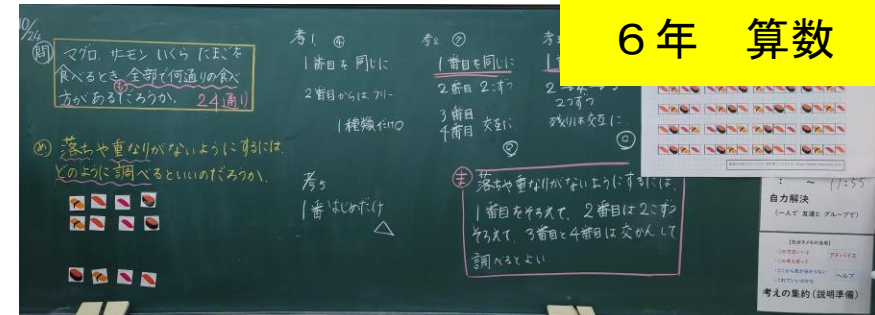 6年 算数
10/24
問
マグロ、サーモン いくら たまごを
食べるとき、全部で何通りの食べ
方があるだろうか。 24通り
め 落ちや重なりがないようにするには、
どのように調べるといいのだろうか。
考1.
1番目を同じに
2番目からは フリー
1種類だけ
考2
1番目を同じに
2番目 2こずつ
3番目
4番目 交互に
2つずつ
残りは交互に
考5
1番はじめだけ
△
ま 落ちや重なりがないようにするには、
1番目をそろえて、2番目は2こずつ
そろえて、3番目と4番目は交かんして
調べるとよい
: ~ 11:55
自力解決
(一人で 友達と グループで)
アドバイス
ヘルプ
考えの集約(説明準備)